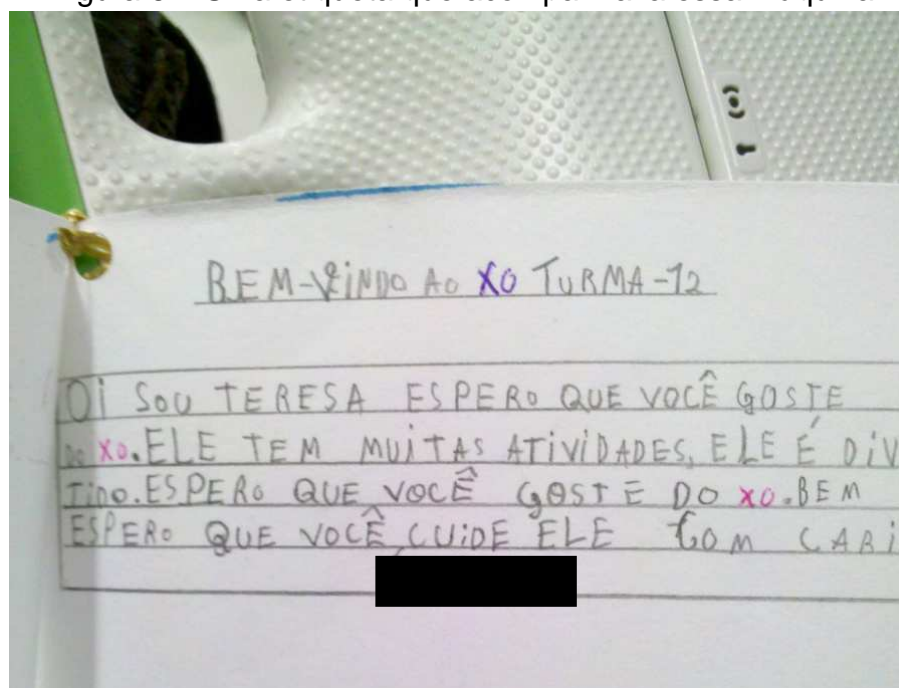 BEM-VEINDO AO XO TURMA-12
OI SOU TERESA ESPERO QUE VOCÊ GOSTE
DO XO. ELE TEM MUITAS ATIVIDADES, ELE É DIV
TIDO. ESPERO QUE VOCÊ GOSTE DO XO. BEM
ESPERO QUE VOCÊ CUIDE ELE COM CARI